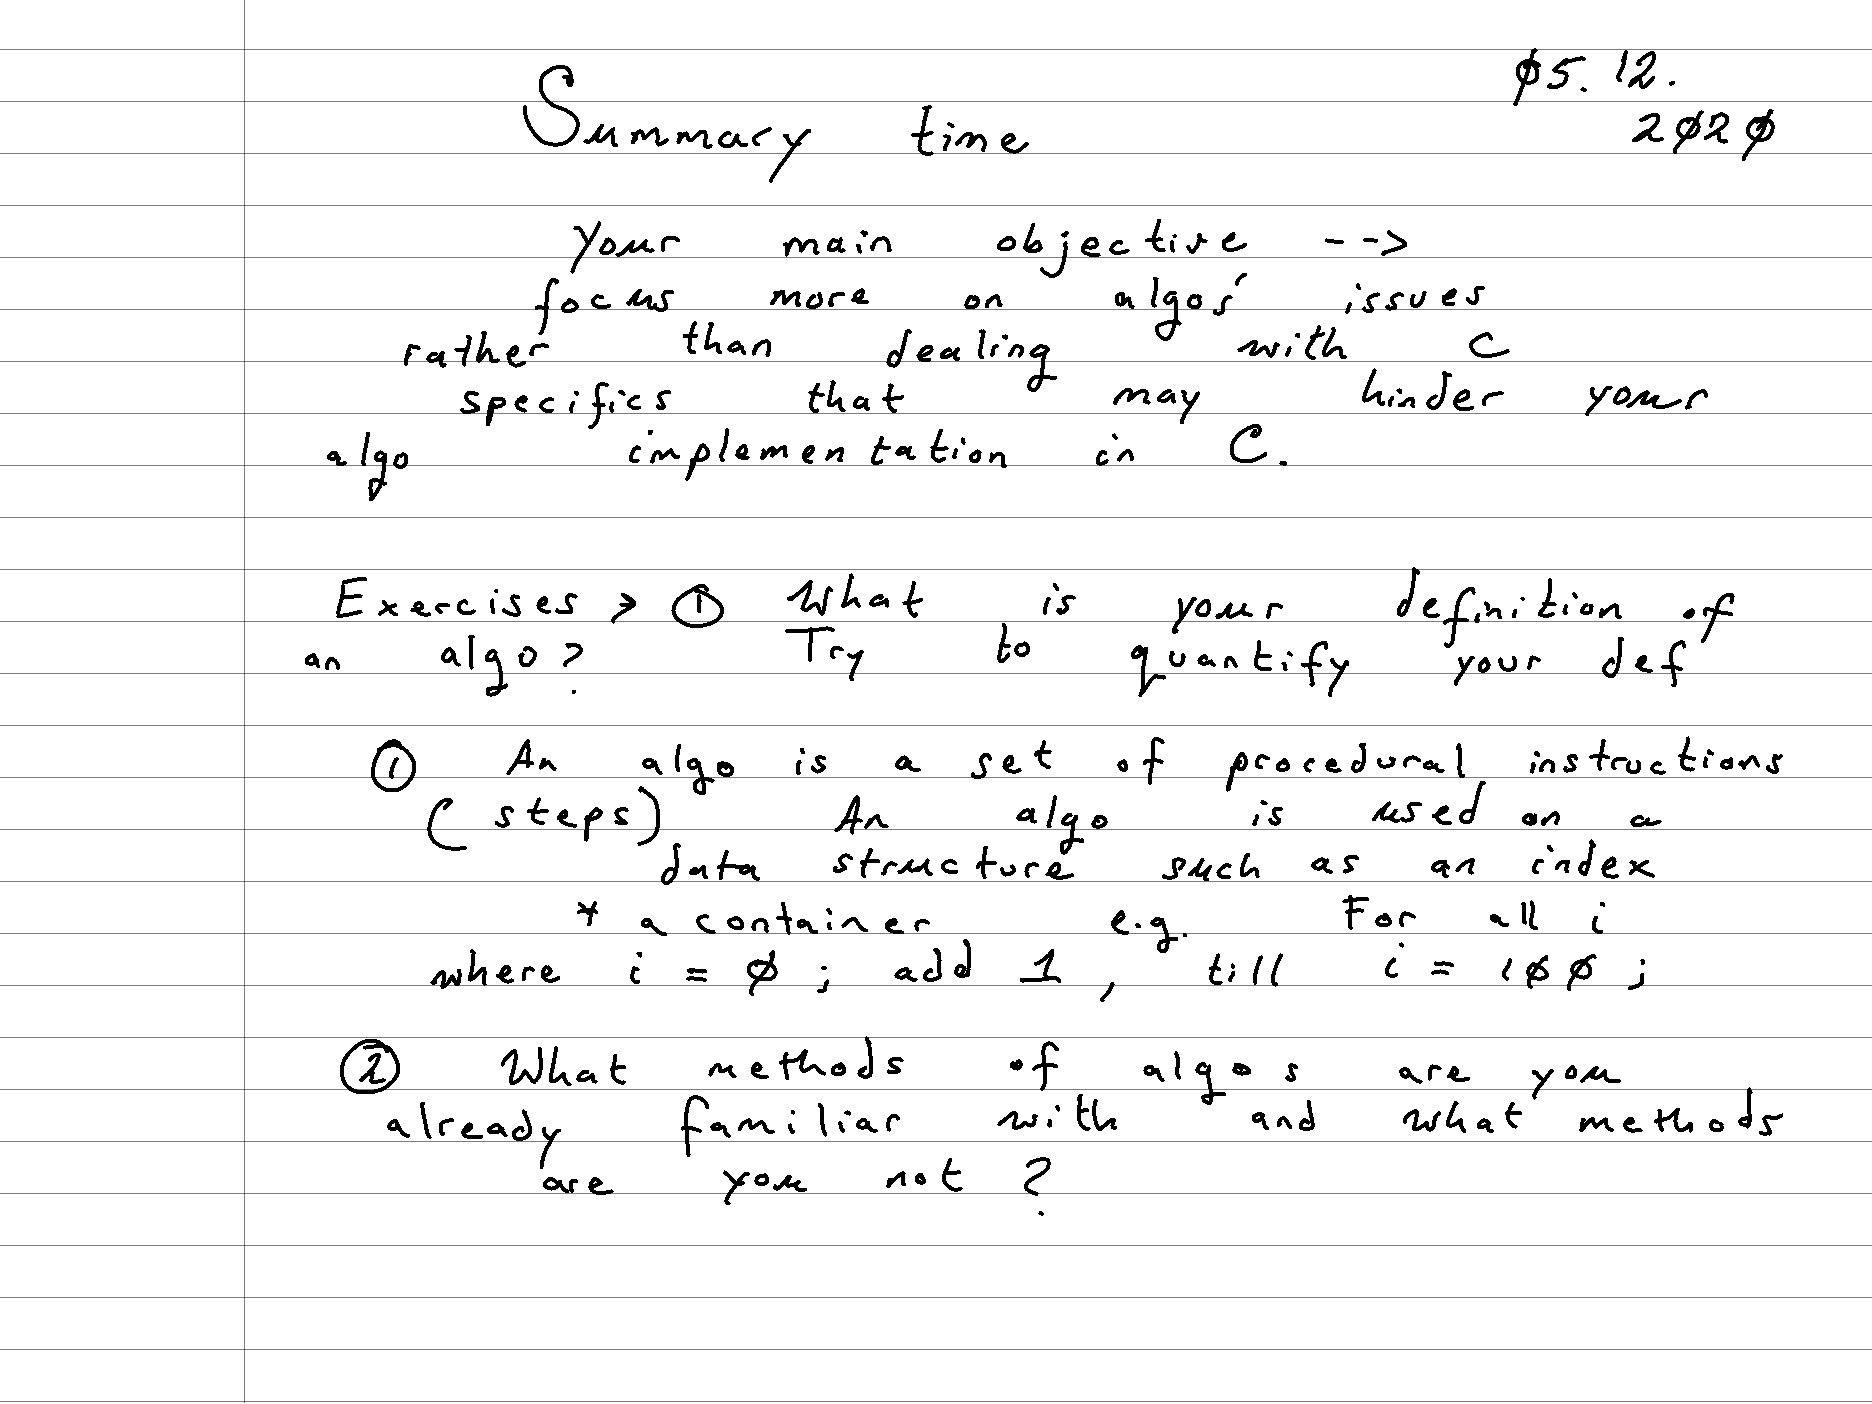 Summary time
05.12.
2020
Your main objective -->
focus more on algos' issues
rather than dealing with C
specifics that may hinder your
algo implementation in C.
Exercises > ① What is your definition of
an algo? Try to quantify your def
① An algo is a set of procedural instructions
(steps) An algo is used on a
data structure such as an index
* a container e.g. For all i
where i = 0 ; add 1 , till i = 100 ;
② What methods of algos are you
already familiar with and what methods
are you not ?